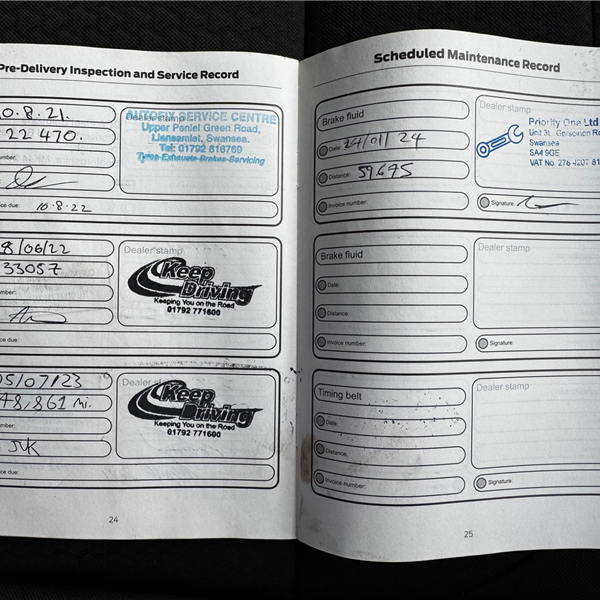 Pre-Delivery Inspection and Service Record
0.8.21.
22 470.
umber:
ce due: 10.8.22
Dealer stamp
AUTOFIX SERVICE CENTRE
Upper Peniel Green Road,
Llansamlet, Swansea.
Tel: 01792 816769
Tyres-Exhausts-Brakes-Servicing
8/06/22
33057
mber:
ce due:
Dealer stamp
Keep
Driving
Keeping You on the Road
01792 771600
05/07/23
48,861 Mi.
mber:
ce due:
Dealer stamp
Keep
Driving
Keeping You on the Road
01792 771600
24
Scheduled Maintenance Record
Brake fluid
Date: 24/01/24
Distance: 59695
Invoice number:
Dealer stamp
Priority One Ltd
Unit 3L
Swansea
SA4 9GE
VAT No. 276 4207 81
Signature:
Brake fluid
Date:
Distance:
Invoice number:
Dealer stamp
Signature:
Timing belt
Date:
Distance:
Invoice number:
Dealer stamp
Signature:
25